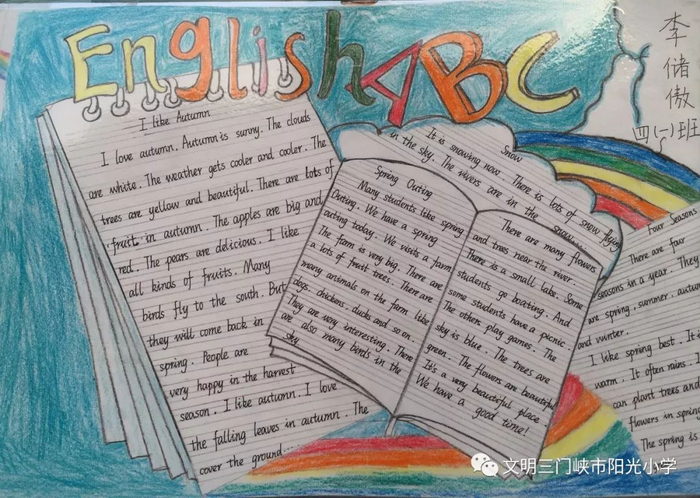 English ABC
李
储
傲
四(一)班
I like Autumn
I love autumn. Autumn is sunny. The clouds
are white. The weather gets cooler and cooler. The
trees are yellow and beautiful. There are lots of
fruit in autumn. The apples are big and
red. The pears are delicious. I like
all kinds of fruits. Many
birds fly to the south. But
they will come back in
spring. People are
very happy in the harvest
season. I like autumn. I love
the falling leaves in autumn. The
cover the ground
Snow
It is snowing now. There is lots of snow flying
in the sky. The rivers are in the snow
Spring Outing
Many students like spring
Outing. We have a spring
outing today. We visit a farm
The farm is very big. There are
a lots of fruit trees. There are
many animals on the farm like
dogs, chickens, ducks and so on.
They are very interesting. There
are also many birds in the
sky
There are many flowers
and trees near the river.
There is a small lake. Some
students go boating. And
some students have a picnic
The other play games. The
sky is blue. The trees are
green. The flowers are beautiful
It's a very beautiful place
We have a good time!
Four Seasons
There are four
seasons in a year. They
are spring, summer, autumn
and winter.
I like spring best. It
warm. It often rains. I
can plant trees and
flowers in spring
The spring is
文明三门峡市阳光小学